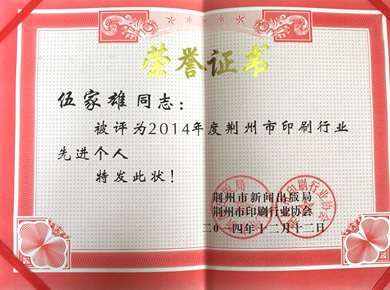 荣誉证书
伍家雄同志：
被评为2014年度荆州市印刷行业
先进个人
特发此状！
荆州市新闻出版局
荆州市印刷行业协会
二〇一四年十二月十二日